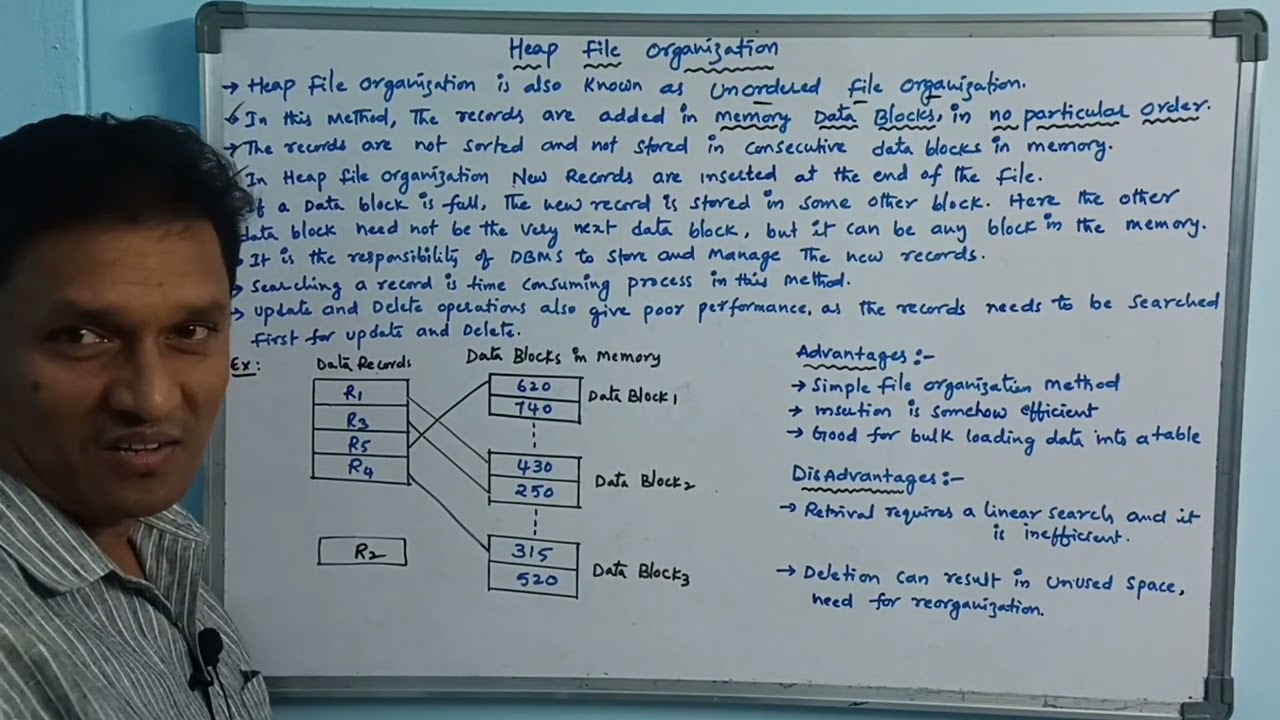 Heap File Organization
→ Heap File Organization is also Known as Unordered file organization.
In this Method, The records are added in memory Data Blocks, in no particular order.
→ The records are not sorted and not stored in consecutive data blocks in memory.
In Heap file organization New Records are inserted at the end of the file.
If a Data block is full, The new record is stored in some other block. Here the other
data block need not be the very next data block, but it can be any block in the memory.
It is the responsibility of DBMS to store and Manage The new records.
→ Searching a record is time consuming process in this method.
→ Update and Delete operations also give poor performance, as the records needs to be searched
first for update and Delete.
Ex:
Data Records
R1
R3
R5
R4
R2
Data Blocks in Memory
620
740
Data Block1
430
250
Data Block2
315
520
Data Block3
Advantages:-
→ Simple file organization method
→ insertion is somehow efficient
→ Good for bulk loading data into a table
DisAdvantages:-
→ Retrival requires a linear search and it
is inefficient.
→ Deletion can result in unused space,
need for reorganization.